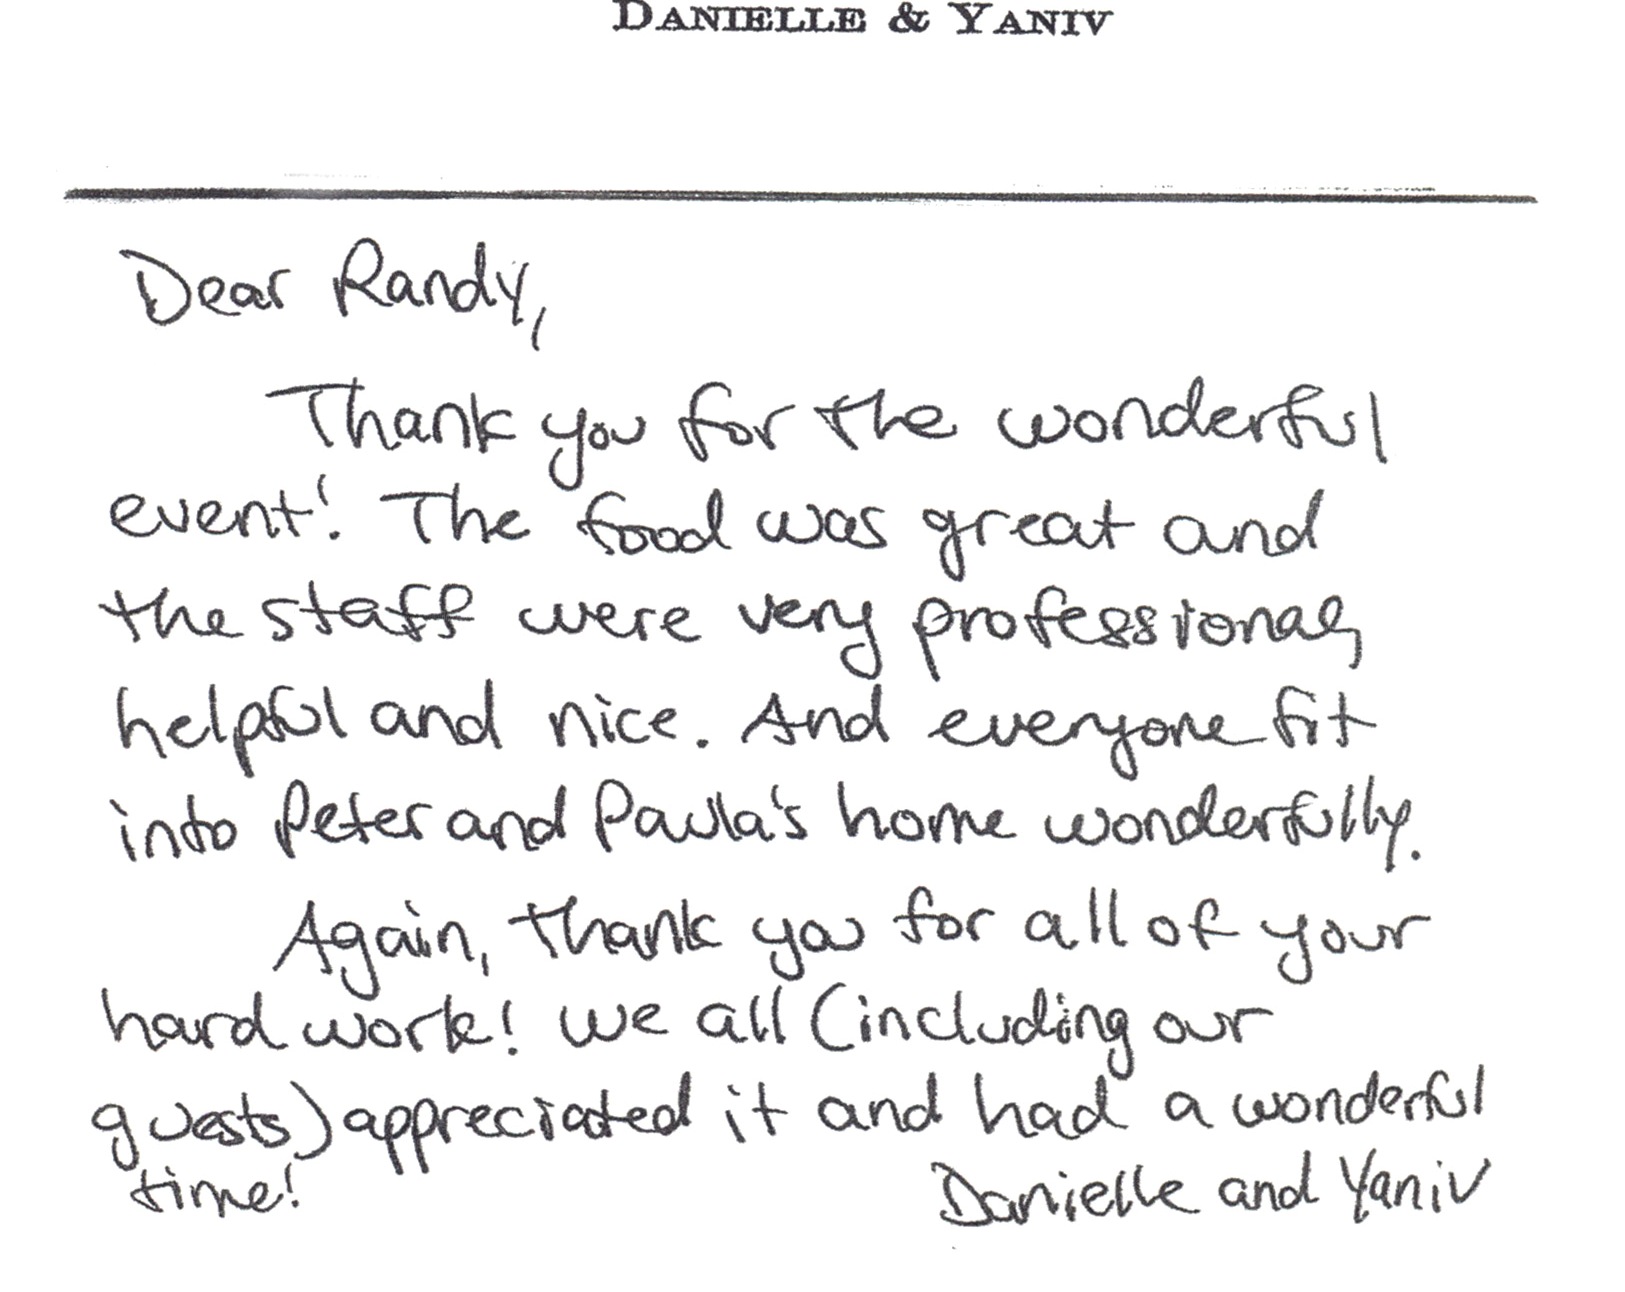 DANIELLE & YANIV
Dear Randy,
Thank you for the wonderful
event! The food was great and
the staff were very professional,
helpful and nice. And everyone fit
into Peter and Paula's home wonderfully.
Again, thank you for all of your
hard work! We all (including our
guests) appreciated it and had a wonderful
time!
Danielle and Yaniv